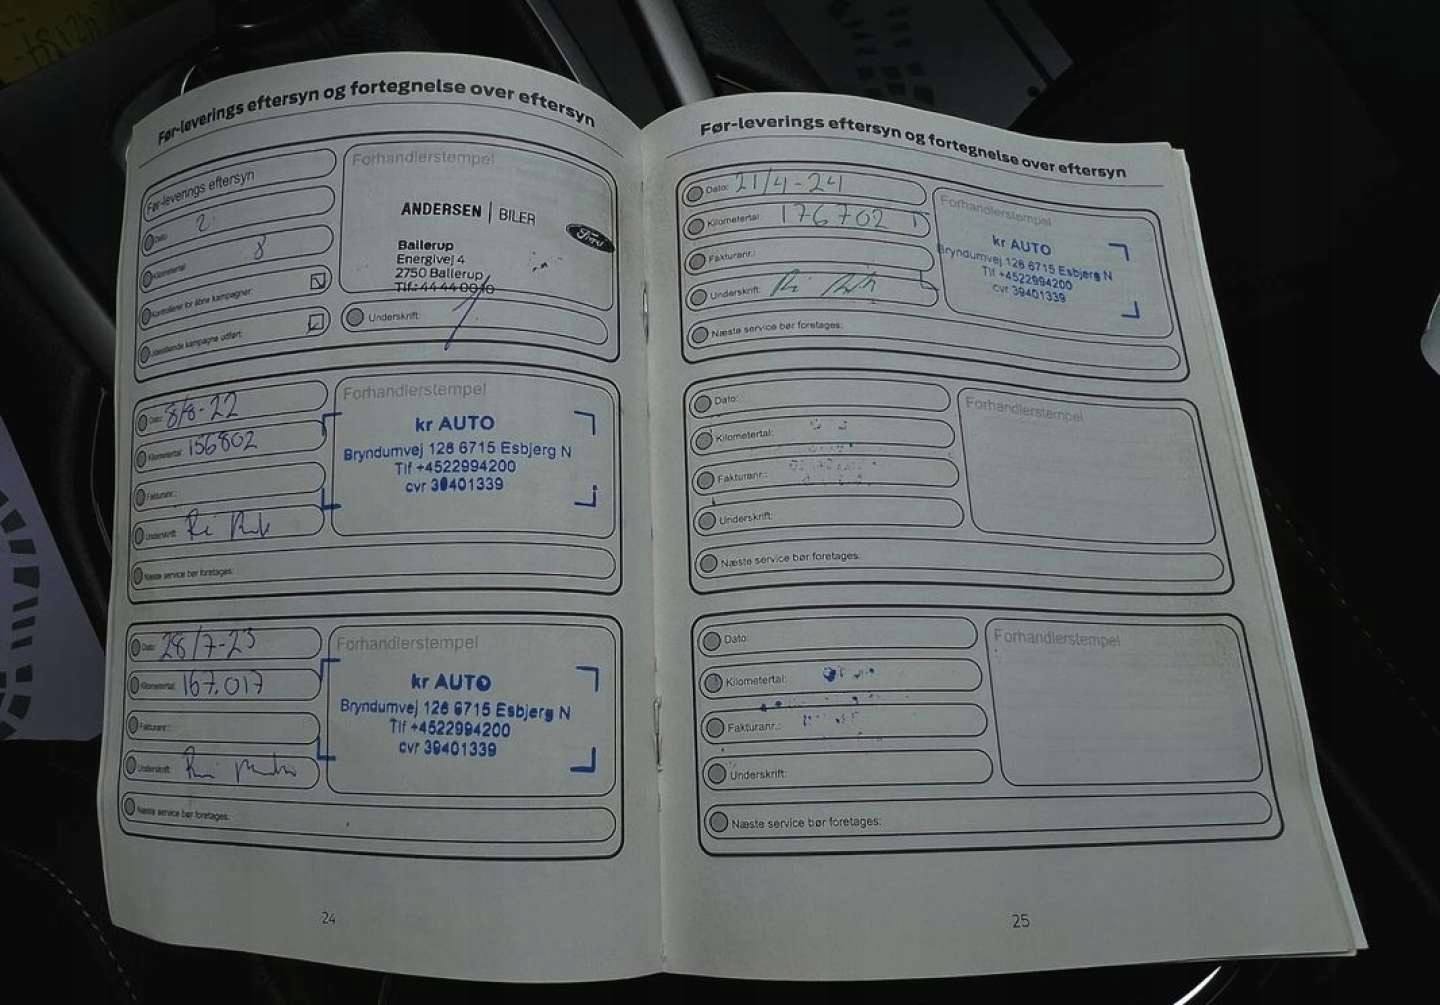 Før-leverings eftersyn og fortegnelse over eftersyn
Før-leverings eftersyn
Dato:
Kilometertal: 8
Kontrolleret for åbne kampagner:
Udestående kampagne udført:
Forhandlerstempel
ANDERSEN | BILER
Ford
Ballerup
Energivej 4
2750 Ballerup
Tlf.: 44 44 00 10
Underskrift:
Dato: 8/8-22
Kilometertal: 156802
Fakturanr.:
Underskrift:
Næste service bør foretages:
Forhandlerstempel
kr AUTO
Bryndumvej 126 6715 Esbjerg N
Tlf +4522994200
cvr 39401339
Dato: 28/7-23
Kilometertal: 167.017
Fakturanr.:
Underskrift:
Næste service bør foretages:
Forhandlerstempel
kr AUTO
Bryndumvej 126 6715 Esbjerg N
Tlf +4522994200
cvr 39401339
24
Før-leverings eftersyn og fortegnelse over eftersyn
Dato: 21/4-24
Kilometertal: 176702
Fakturanr.:
Underskrift:
Næste service bør foretages:
Forhandlerstempel
kr AUTO
Bryndumvej 126 6715 Esbjerg N
Tlf +4522994200
cvr 39401339
Dato:
Kilometertal:
Fakturanr.:
Underskrift:
Næste service bør foretages:
Forhandlerstempel
Dato:
Kilometertal:
Fakturanr.:
Underskrift:
Næste service bør foretages:
Forhandlerstempel
25